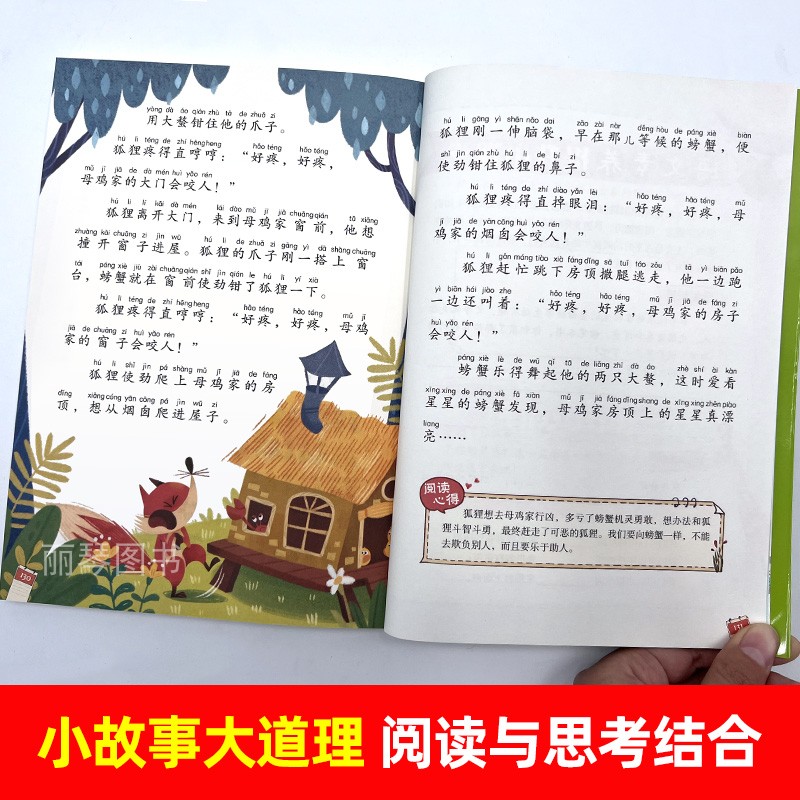 yòng dà áo qián zhù tā de zhuǎ zi
用大螯钳住他的爪子。
hú li téng de zhí hēng heng hǎo téng hǎo téng
狐狸疼得直哼哼：“好疼，好疼，
mǔ jī jiā de dà mén huì yǎo rén
母鸡家的大门会咬人！”
hú li lí kāi dà mén lái dào mǔ jī jiā chuāng qián tā xiǎng
狐狸离开大门，来到母鸡家窗前，他想
zhuàng kāi chuāng zi jìn wū hú li de zhuǎ zi gāng yì dā shàng chuāng
撞开窗子进屋。狐狸的爪子刚一搭上窗
tái páng xiè jiù zài chuāng qián shǐ jìn qián le hú li yí xià
台，螃蟹就在窗前使劲钳了狐狸一下。
hú li téng de zhí hēng heng hǎo téng hǎo téng mǔ jī
狐狸疼得直哼哼：“好疼，好疼，母鸡
jiā de chuāng zi huì yǎo rén
家的窗子会咬人！”
hú li shǐ jìn pá shàng mǔ jī jiā de fáng
狐狸使劲爬上母鸡家的房
dǐng xiǎng cóng yān cōng pá jìn wū zi
顶，想从烟囱爬进屋子。
丽琴图书
130
hú li gāng yì shēn nǎo dai zǎo zài nàr děng hòu de páng xiè biàn
狐狸刚一伸脑袋，早在那儿等候的螃蟹，便
shǐ jìn qián zhù hú li de bí zi
使劲钳住狐狸的鼻子。
hú li téng de zhí diào yǎn lèi hǎo téng hǎo téng mǔ
狐狸疼得直掉眼泪：“好疼，好疼，母
jī jiā de yān cōng huì yǎo rén
鸡家的烟囱会咬人！”
hú li gǎn máng tiào xià fáng dǐng sā tuǐ táo zǒu tā yì biān pǎo
狐狸赶忙跳下房顶撒腿逃走，他一边跑
yì biān hái jiào zhe hǎo téng hǎo téng mǔ jī jiā de fáng zi
一边还叫着：“好疼，好疼，母鸡家的房子
huì yǎo rén
会咬人！”
páng xiè lè de wǔ qǐ tā de liǎng zhī dà áo zhè shí ài kàn
螃蟹乐得舞起他的两只大螯，这时爱看
xīng xing de páng xiè fā xiàn mǔ jī jiā fáng dǐng shang de xīng xing zhēn piào
星星的螃蟹发现，母鸡家房顶上的星星真漂
liang
亮……
阅读
心得
狐狸想去母鸡家行凶，多亏了螃蟹机灵勇敢，想办法和狐
狸斗智斗勇，最终赶走了可恶的狐狸。我们要向螃蟹一样，不能
去欺负别人，而且要乐于助人。
131
小故事大道理 阅读与思考结合